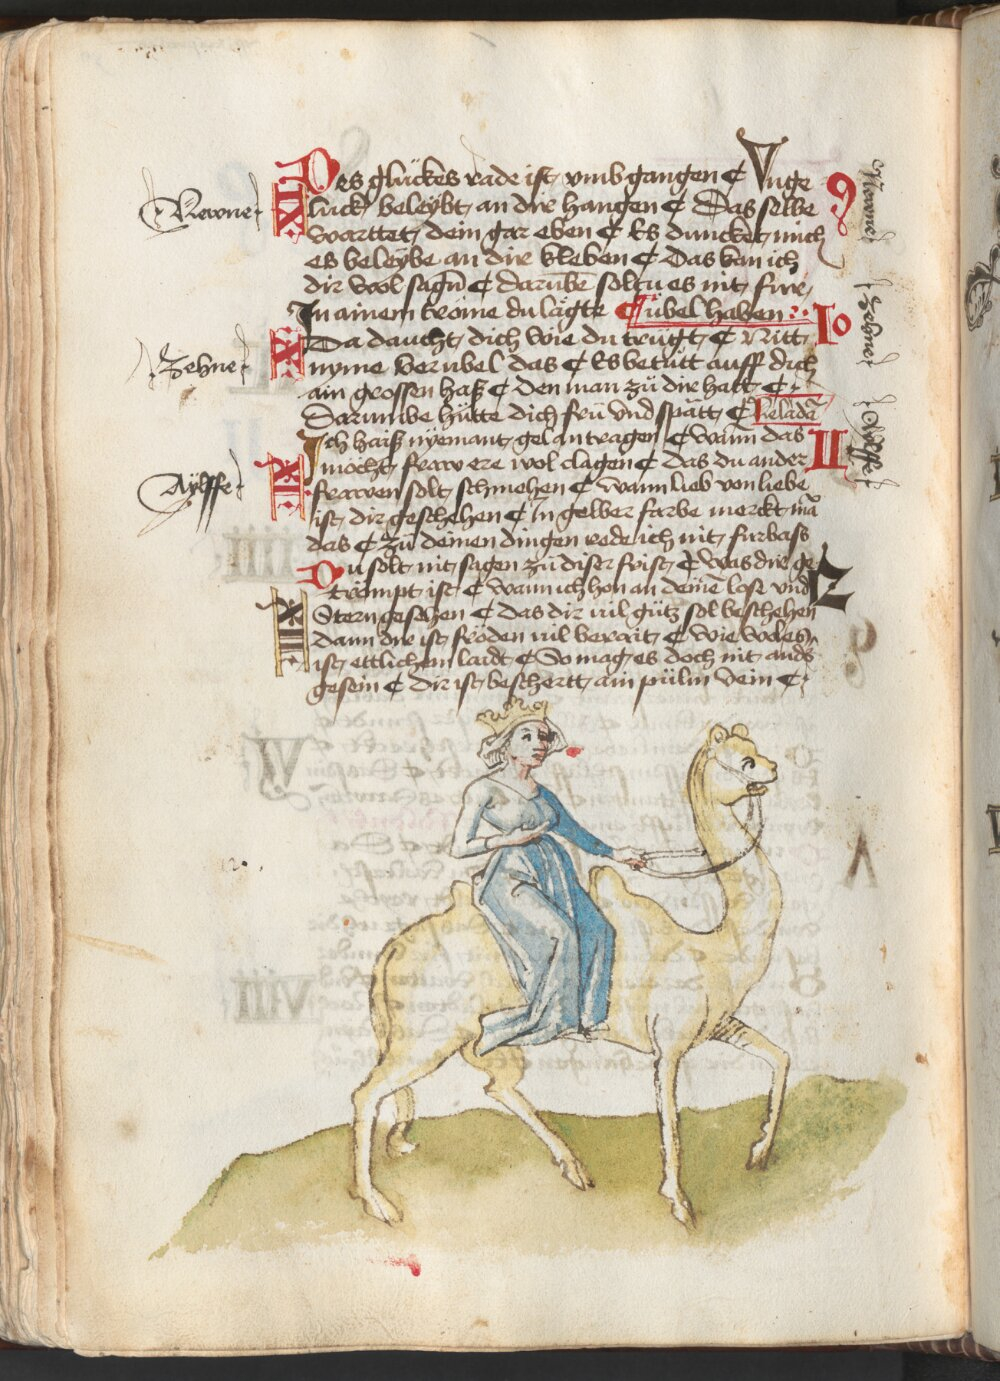 Des glückes rade ist vmb gangen ¢ Vnge
Newne IX lück beleybt an dir hangen ¢ Das selbe 9 Newne
warttet dein gar eben ¢ Es duncket mich
es beleybe an dir kleben ¢ Das kan ich
dir wol sagn̄ ¢ darūbe soltu es nit
In ainem tröme du lägte ¢ übel haben Zehne
Zehne X Da daucht dich wie du trügt ¢ Nitt 10
nyme ver übel das ¢ Es betütt auff dich
ain grossen haß ¢ den man zů dir hatt ¢
Darumbe hütte dich frü vnd spätt ¢
Ich haiß nyemant gelantragen ¢ wann das 11
möcht frawere wol clagen ¢ das du ander
Aÿlffe XI frawen solt schmehen ¢ wann lieb von liebe
ist dir geschehen ¢ In gelber farbe merckt mā
das ¢ Zů deinen dingen rede ich nit furbass
Du solt nit sagen zů diser frist ¢ was dir ge 12
trömpt ist ¢ wann ich hon an deinē lose vnd
XII Stern gesehen ¢ das dir vil gůtz sol beschehen
dann dir ist fröden vil berait ¢ wie wol es
ist ettlichem laidt ¢ So mag es doch nit and's
gesein ¢ dir ist beschertt ain pülin dein ¢